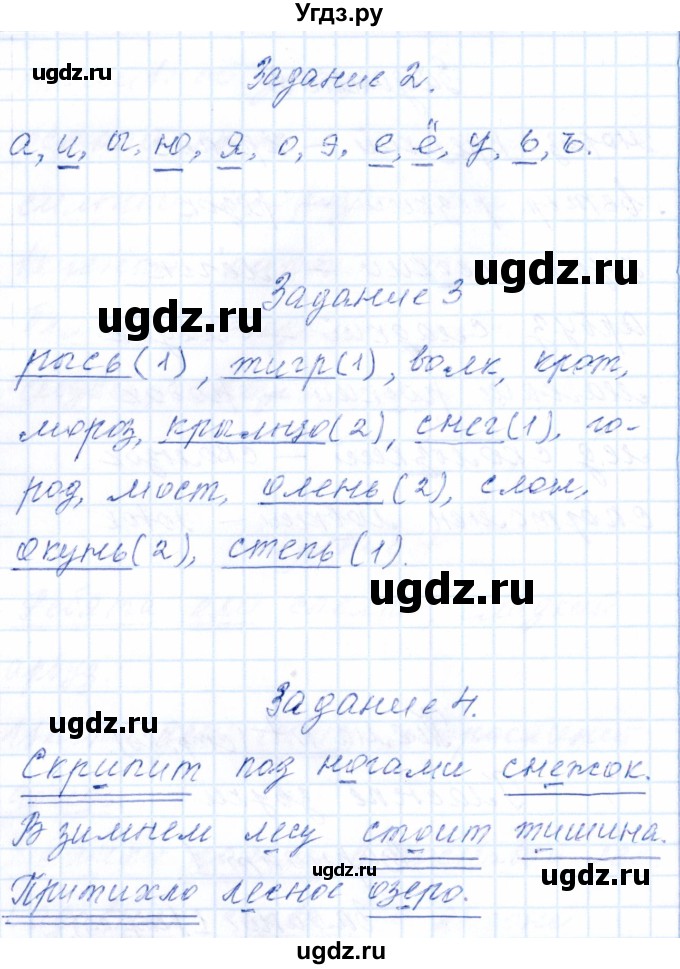 Угдз.ру
ugdz.ru
Задание 2.
а, и, ы, ю, я, о, э, е, ё, у, ь, ъ.
ugdz.ru
Задание 3
ugdz.ru
рысь (1), тигр (1), волк, крот,
мороз, крыльцо (2), снег (1), го-
род, мост, олень (2), слон,
окунь (2), степь (1).
ugdz.ru
Задание 4.
ugdz.ru
Скрипит под ногами снежок.
В зимнем лесу стоит тишина.
ugdz.ru
ugdz.ru
Притихло лесное озеро.
ugdz.ru